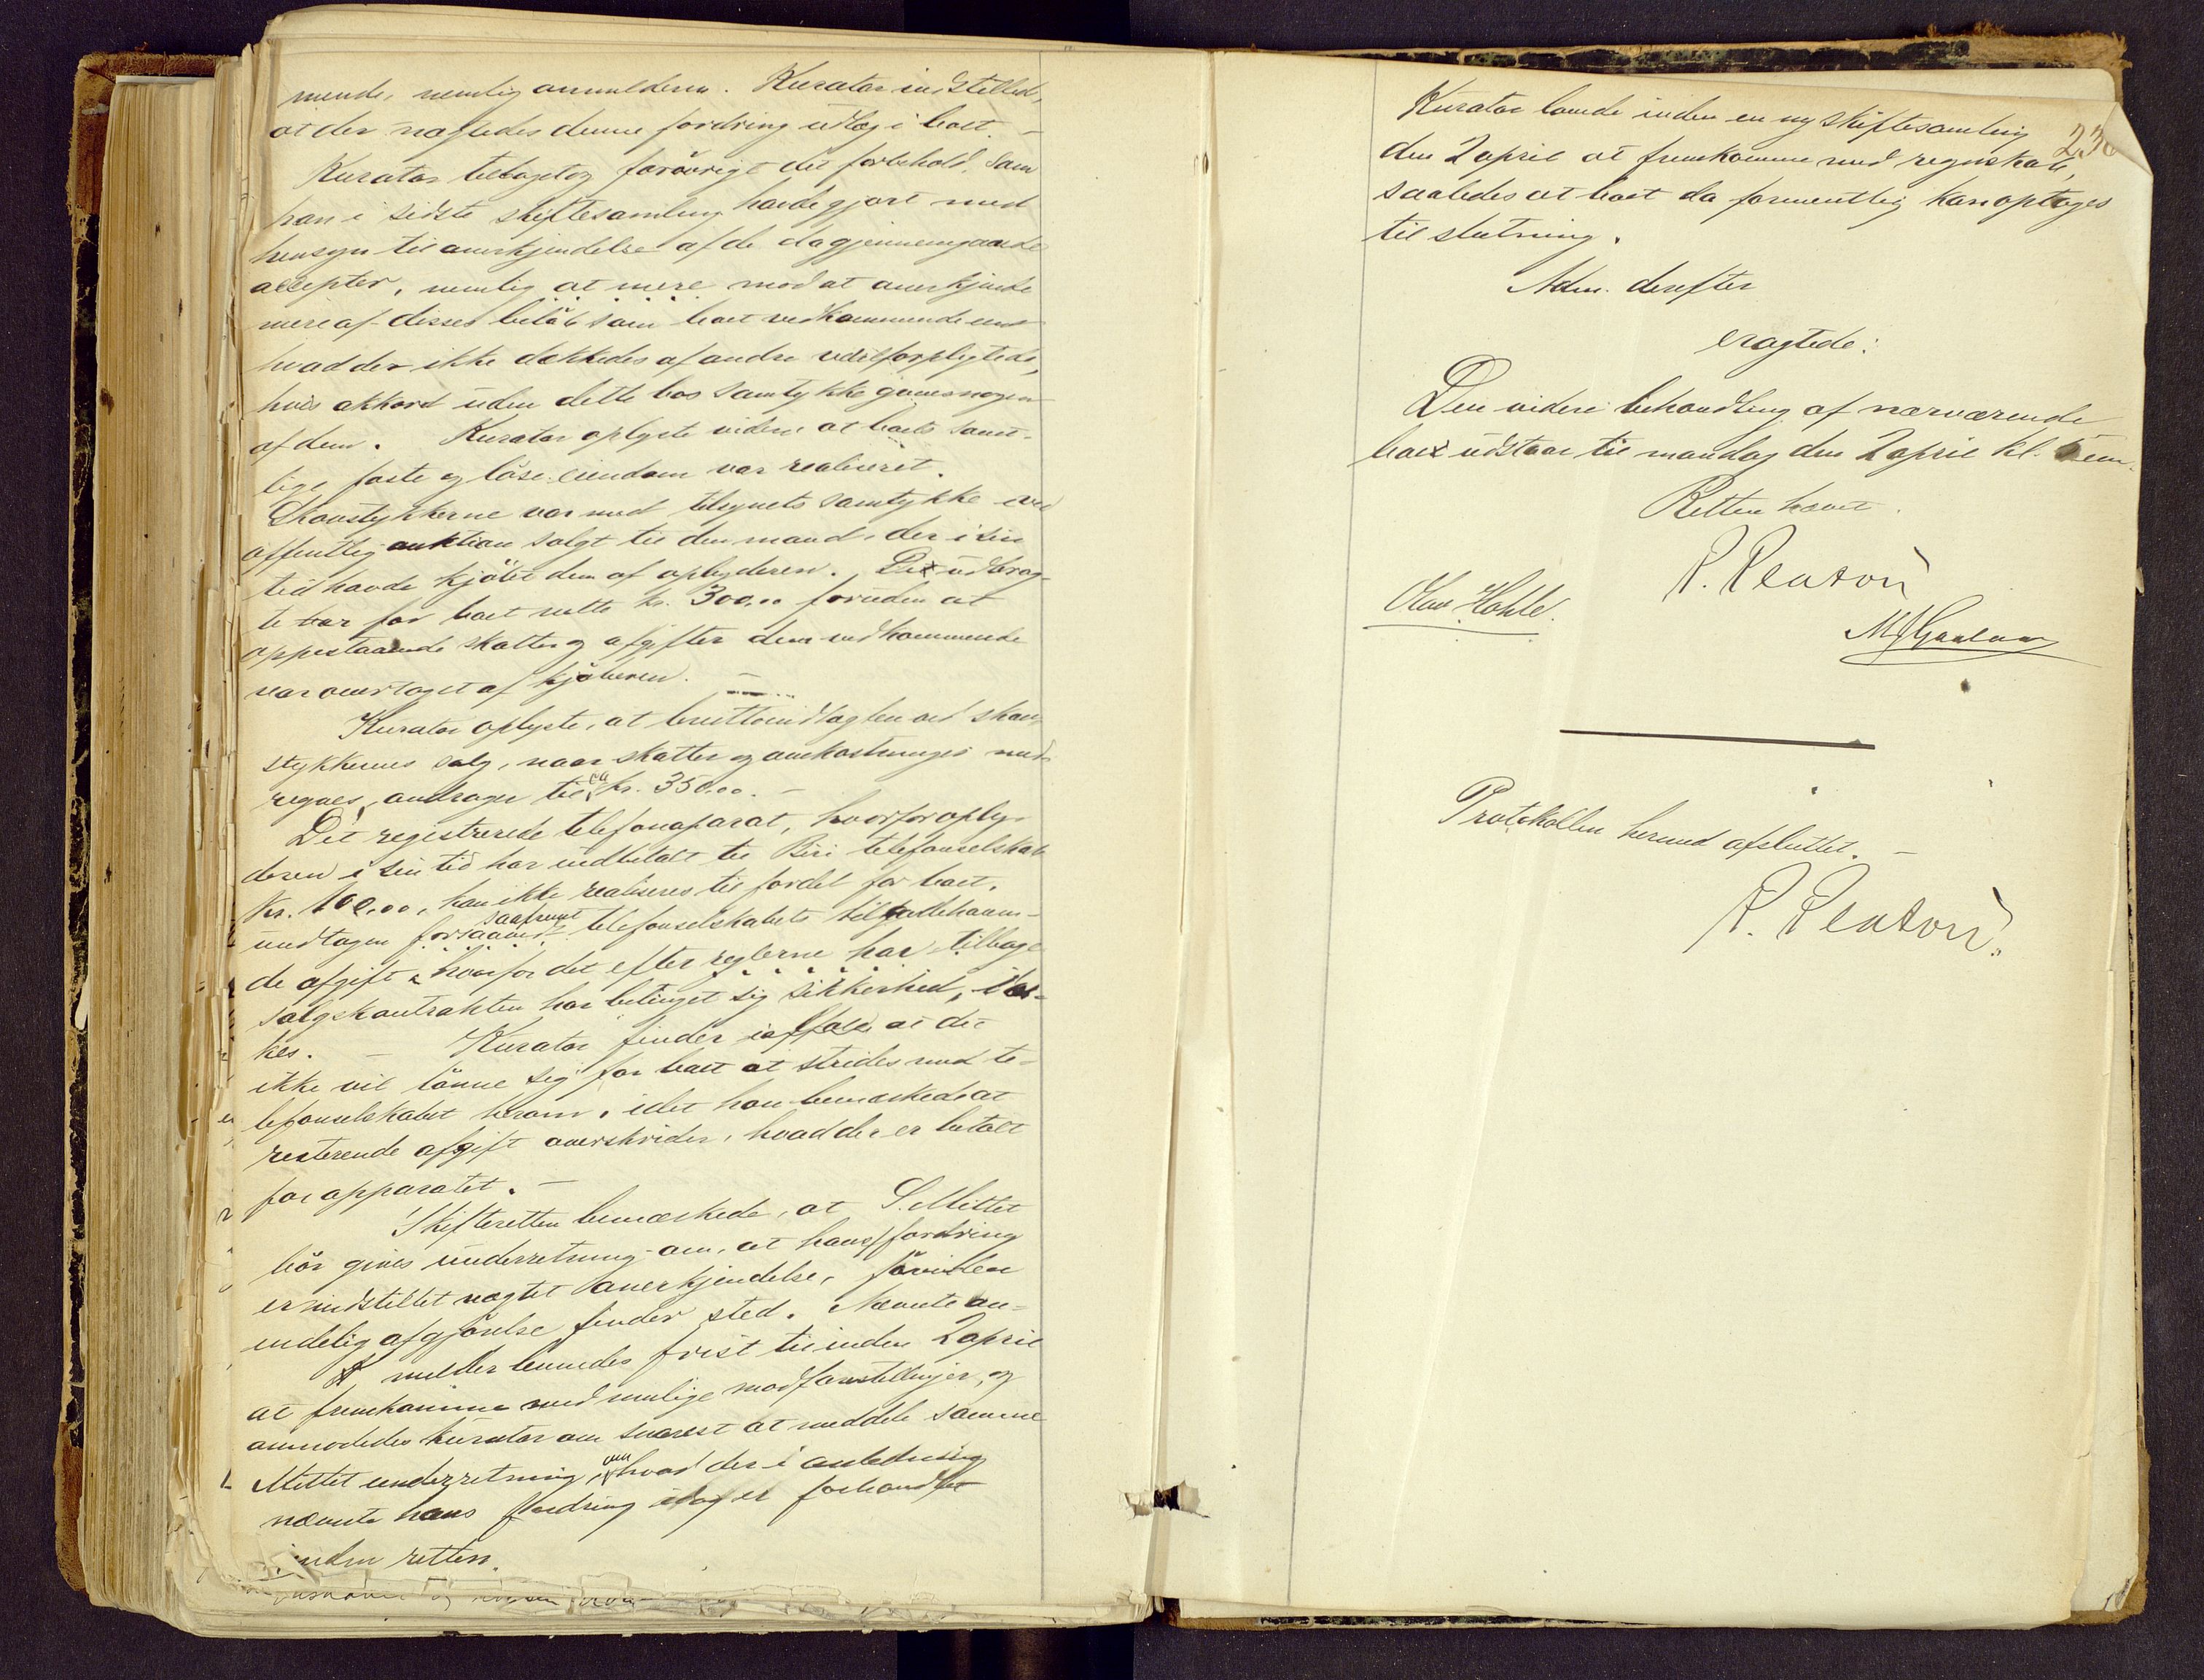 mende, nemlig anmelderen. Kurator indstilled,
at der nægtedes denne fordring udlæg i boet. –
Kurator tilbagetog forøvrigt det forbehold, som
han i sidste skiftesamling havde gjort med
hensyn til anerkjendelse af de da gjennemgaaede
accepter, nemlig at mere mod at anerkjende
mere af disses beløb som boet vedkommende end
hvad der ikke dækkedes af andre vexelforpligtede,
hvis akkord uden dette bos samtykke gaves nogen
af dem. Kurator oplyste videre at boets samt-
lige faste og løse eiendom var realiseret.
Skovstykkerne var med tilsynets samtykke ved
offentlig auktion solgt til den mand, der i sin
tid havde kjøbt dem af opbyderen. Det udbrag-
te bar for boet netto kr. 300,00 foruden at
oppestaaende skatter og afgifter dem vedkommende
var overtaget af kjøberen. –
Kurator oplyste, at bruttoindtægten ved skov-
stykkernes salg, naar skatter og omkostninger med-
regnes, andrager til ca kr. 350,00. –
Det registrerede telefonaparat, hvorfor opby-
deren i sin tid har indbetalt til Biri telefonselskab
Kr. 100,00, kan ikke realiseres til fordel for boet,
undtagen forsaavidt saafremt telefonselskabets tilgodehaven-
de afgift, hvorfor det efter reglerne har tilbage
salgskontrakten har betinget sig sikkerhed, dæk-
kes. – Kurator finder ialfald at det
ikke vil lønne sig for boet at strides med te-
lefonselskabet herom, idet han bemærkede at
resterende afgift overskrider, hvad der er betalt
for apparatet. –
Skifteretten bemærkede, at S. Mittet
bør gives underretning om, at hans fordring
er indstillet nægtet anerkjendelse, førend en
endelig afgjørelse finder sted. Nævnte an-
melder levnedes frist til inden 2 april
at fremkomme med mulige modforestillinger, og
anmodedes kurator om snarest at meddele samme
Mittet underretning om hvad der i anledning
nævnte hans fordring idag er forhandlet
inden retten.
Kurator lovede inden en ny skiftesamling
230
den 2 april at fremkomme med regnskab,
saaledes at boet da formentlig kan optages
til slutning.
Adm. derefter
eragtede:
Den videre behandling af nærværende
bo udstaar til mandag den 2 april kl. 5 em.
Retten hævet.
P. Pleaton
Olav Hohle.
M J Gaalaas
Protokollen hermed afsluttet. –
P. Pleaton.